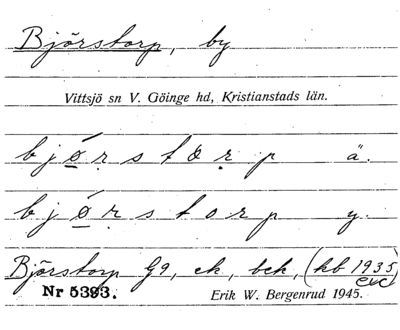 Björstorp, by
Vittsjö sn V. Göinge hd, Kristianstads län.
bjǿ̲ṛstơṛp ä.
bjǿ̲ṛstorp y.
Björstorp G9, ek, bek, (hb 1935
exc)
Nr 5393. Erik W. Bergenrud 1945.